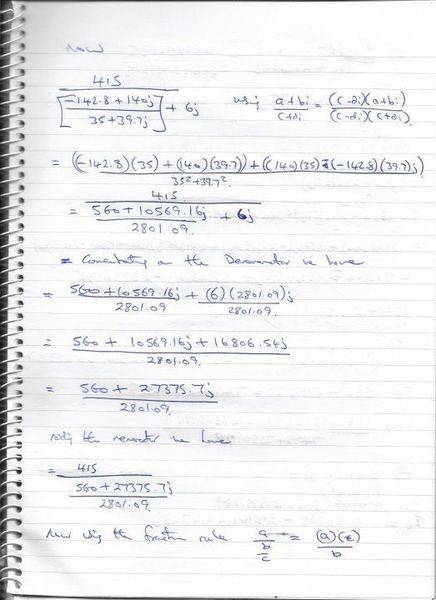 Now
415
[-142.8 + 140j / 35 + 39.7j] + 6j using a+bi / c+di = (c-di)(a+bi) / (c-di)(c+di)
= ((-142.8)(35) + (140)(39.7)) + ((140)(35) - (-142.8)(39.7)j) / 35² + 39.7²
415
= 560 + 10569.16j / 2801.09 + 6j
= Concentrating on the Denominator we have
= 560 + 10569.16j / 2801.09 + (6)(2801.09)j / 2801.09
= 560 + 10569.16j + 16806.54j / 2801.09
= 560 + 27375.7j / 2801.09
the numerator we have
= 415
560 + 27375.7j
2801.09
Now using the fraction rule a / (b / c) = (a)(c) / b